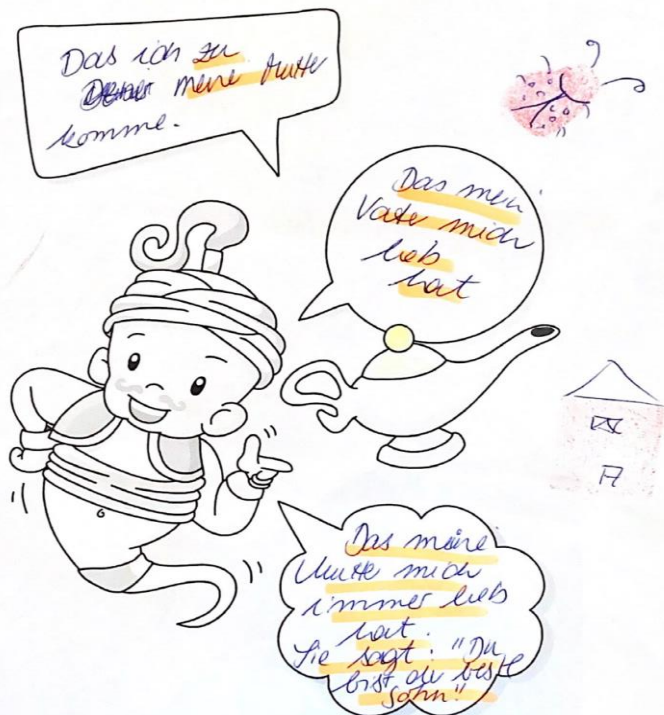 Das ich zu
meine Mutter
komme.
Das mein
Vate mich
lieb
hat
Das meine
Mutte mich
immer lieb
hat.
Sie sagt: "Du
bist die beste
Sohn"